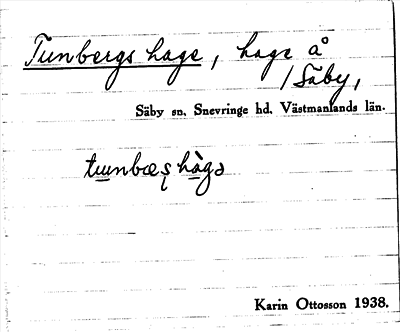 Tunbergs hage, hage å
/ Säby,
Säby sn. Snevringe hd. Västmanlands län.
Karin Ottosson 1938.